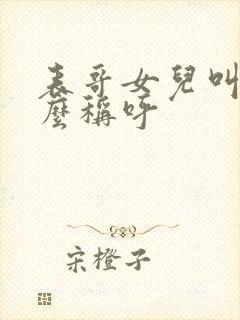 表哥女兒叫
麼稱呼
宋橙子